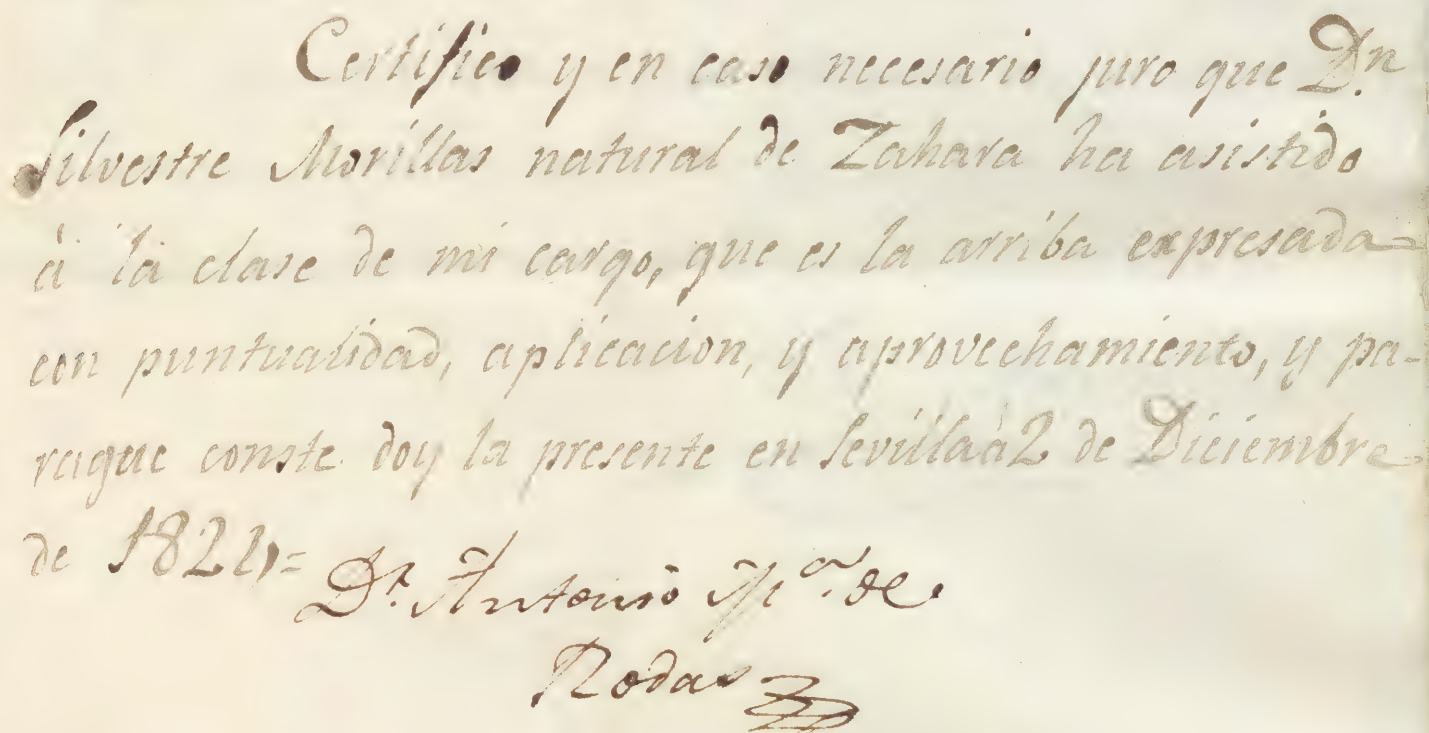 Certifico y en caso necesario juro que Dn.
Silvestre Morillas natural de Zahara ha asistido
à la clase de mi cargo, que es la arriba expresada
con puntualidad, aplicacion, y aprovechamiento, y pa-
raque conste doy la presente en Sevilla à 2 de Diciembre
de 1821,=
Dr. Antonio Ma. de
Rodas